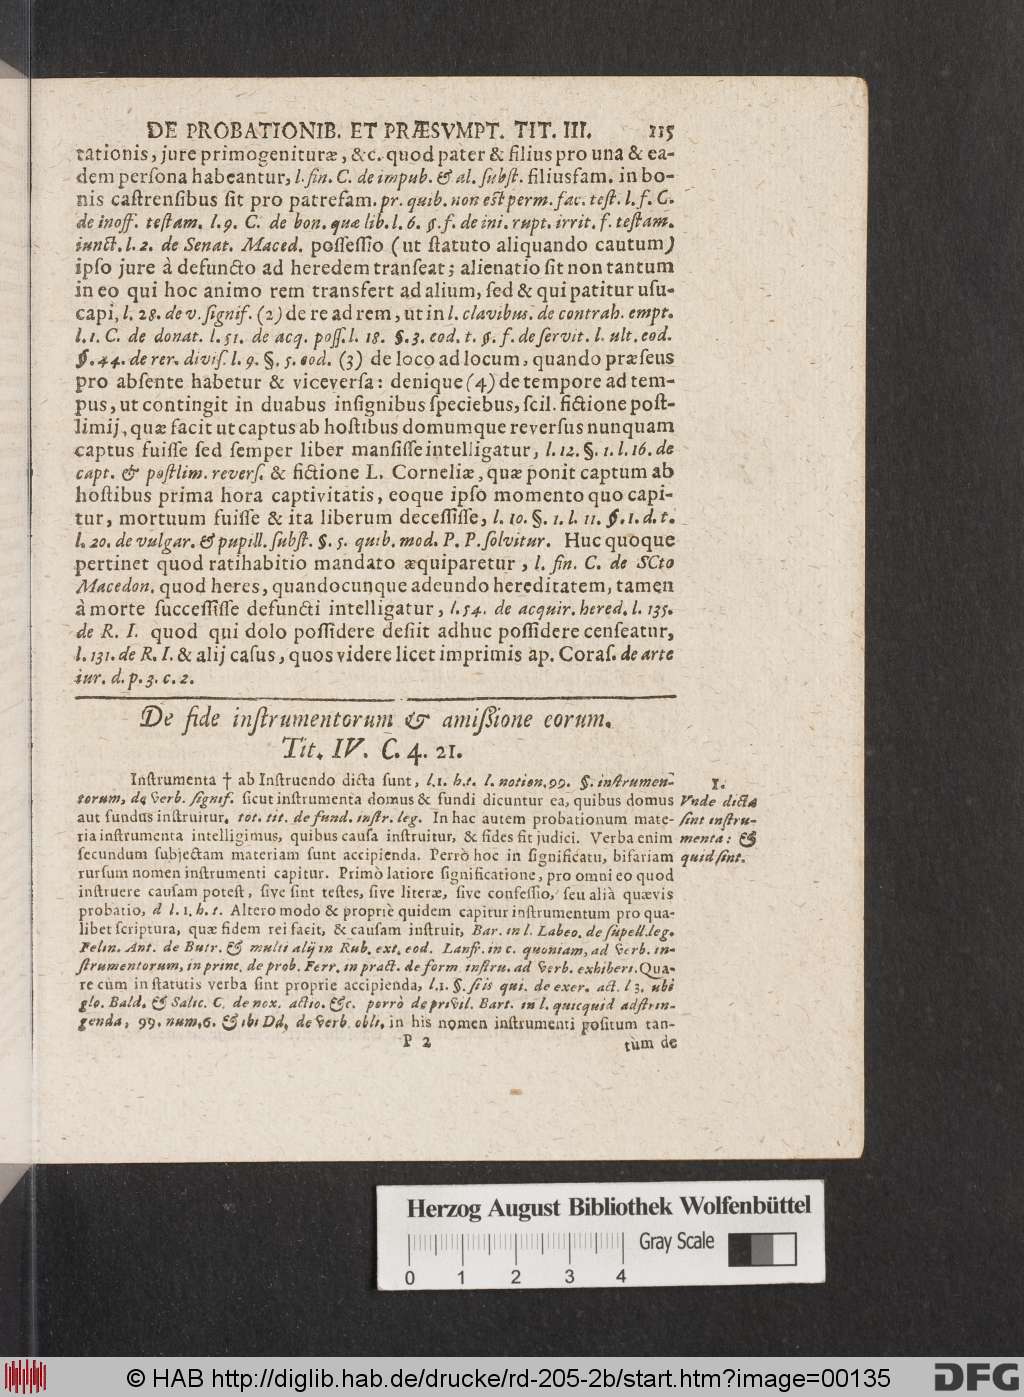 DE PROBATIONIB. ET PRÆSVMPT. TIT. III. 115
tationis, jure primogenituræ, &c. quod pater & filius pro una & ea-
dem persona habeantur, l. fin. C. de impub. & al. subst. filiusfam. in bo-
nis castrensibus sit pro patrefam. pr. quib. non est perm. fac. test. l. f. C.
de inoff. testam. l. 9. C. de bon. quæ lib. l. 6. §. f. de ini. rupt. irrit. f. testam.
iunct. l. 2. de Senat. Maced. possessio (ut statuto aliquando cautum)
ipso jure à defuncto ad heredem transeat; alienatio sit non tantum
in eo qui hoc animo rem transfert ad alium, sed & qui patitur usu-
capi, l. 28. de v. signif. (2) de re ad rem, ut in l. clavibus. de contrah. empt.
l. 1. C. de donat. l. 51. de acq. poss. l. 18. §. 3. eod. t. §. f. de servit. l. ult. eod.
§. 44. de rer. divis. l. 9. §. 5. eod. (3) de loco ad locum, quando præsens
pro absente habetur & viceversa: denique (4) de tempore ad tem-
pus, ut contingit in duabus insignibus speciebus, scil. fictione post-
limij, quæ facit ut captus ab hostibus domumque reversus nunquam
captus fuisse sed semper liber mansisse intelligatur, l. 12. §. 1. l. 16. de
capt. & postlim. revers. & fictione L. Corneliæ, quæ ponit captum ab
hostibus prima hora captivitatis, eoque ipso momento quo capi-
tur, mortuum fuisse & ita liberum decessisse, l. 10. §. 1. l. 11. §. 1. d. t.
l. 20. de vulgar. & pupill. subst. §. 5. quib. mod. P. P. solvitur. Huc quoque
pertinet quod ratihabitio mandato æquiparetur, l. fin. C. de SCto
Macedon. quod heres, quandocunque adeundo hereditatem, tamen
à morte successisse defuncti intelligatur, l. 54. de acquir. hered. l. 135.
de R. I. quod qui dolo possidere desiit adhuc possidere censeatur,
l. 131. de R. I. & alij casus, quos videre licet imprimis ap. Coras. de arte
iur. d. p. 3. c. 2.
De fide instrumentorum & amissione eorum.
Tit. IV. C. 4. 21.
Instrumenta † ab Instruendo dicta sunt, l. 1. h. t. l. notion. 99. §. instrumen-
torum, de verb. signif. sicut instrumenta domus & fundi dicuntur ea, quibus domus
aut fundus instruitur, tot. tit. de fund. instr. leg. In hac autem probationum mate-
ria instrumenta intelligimus, quibus causa instruitur, & fides fit judici. Verba enim
secundum subjectam materiam sunt accipienda. Porrò hoc in significatu, bifariam
rursum nomen instrumenti capitur. Primò latiore significatione, pro omni eo quod
instruere causam potest, sive sint testes, sive literæ, sive confessio, seu alià quævis
probatio, d l. 1. h. t. Altero modo & propriè quidem capitur instrumentum pro qua-
libet scriptura, quæ fidem rei facit, & causam instruit, Bar. in l. Labeo. de supell. leg.
Felin. Ant. de Butr. & multi alij in Rub. ext. eod. Lanfr. in c. quoniam, ad verb. in-
strumentorum, in princ. de prob. Ferr. in pract. de form. instru. ad verb. exhiberi. Qua-
re cùm in statutis verba sint proprie accipienda, l. 1. §. si is qui. de exer. act. l 3. ubi
glo. Bald. & Salic. C. de nox. actio. &c. porrò de privil. Bart. in l. quicquid adstrin-
genda, 99. num. 6. & ibi Dd, de verb. obli, in his nomen instrumenti positum tan-
P 2 tùm de
1.
Vnde dicta
sint instru-
menta: &
quid sint.
Herzog August Bibliothek Wolfenbüttel
Gray Scale
0 1 2 3 4
© HAB http://diglib.hab.de/drucke/rd-205-2b/start.htm?image=00135
DFG